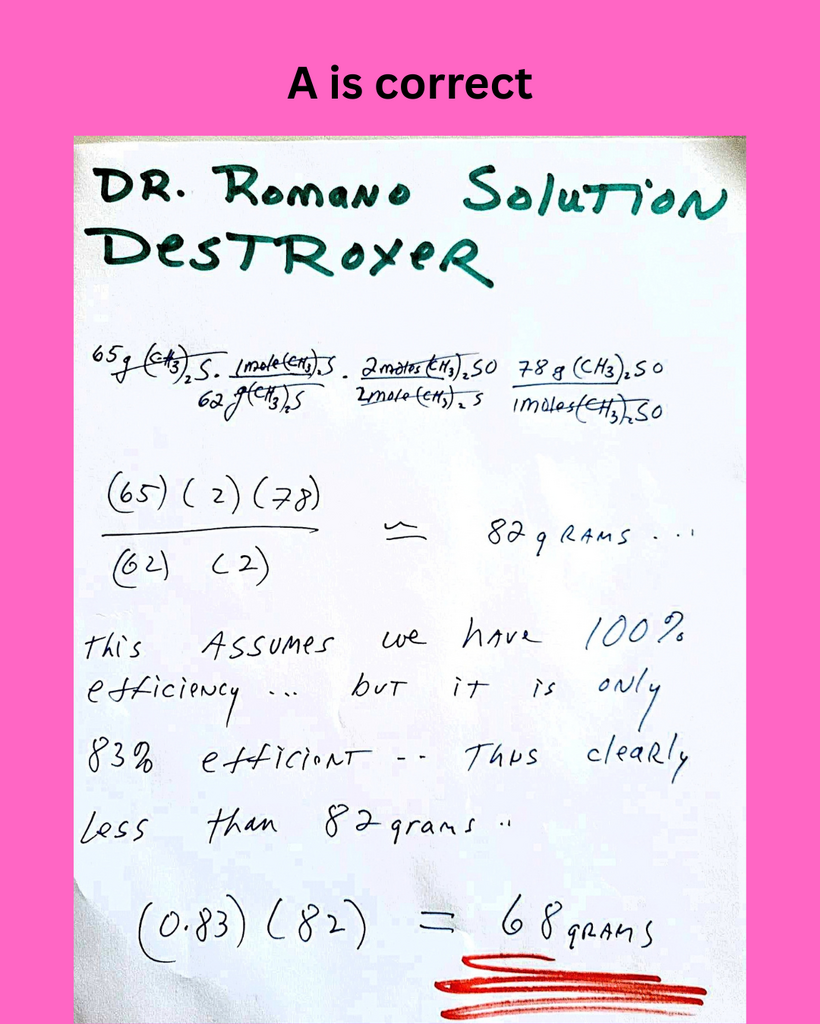 A is correct
DR. Romano Solution
Destroyer
65g (CH3)2S . 1mole(CH3)2S . 2moles(CH3)2SO 78g (CH3)2SO
62g(CH3)2S 2mole(CH3)2S 1moles(CH3)2SO
(65) (2) (78)
(62) (2) ≃ 82 grams ...
this Assumes we have 100%
efficiency ... but it is only
83% efficiont .. Thus clearly
less than 82 grams ..
(0.83) (82) = 68 grams